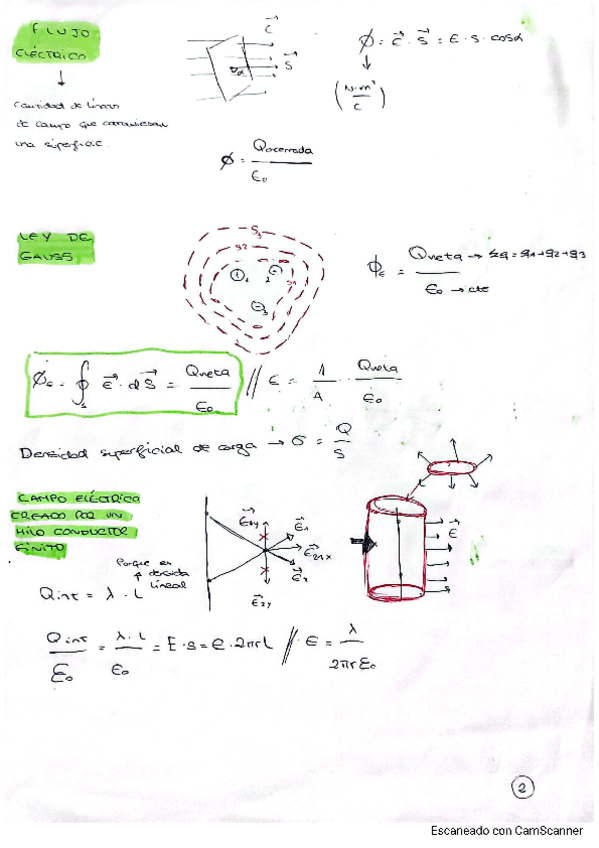 FLUJO
ELÉCTRICO
Cantidad de líneas
de campo que atraviesan
una superficie
E
S
α
ϕ = E · S = E · S · cosα
(N·m²/C)
ϕ = Qencerrada / ε0
LEY DE
GAUSS
S3
S2
S1
ϕE = Qneta → Σq = q1+q2+q3
ε0 → cte
ϕE = ∮s E · dS = Qneta / ε0 // E = 1/A · Qneta / ε0
Densidad superficial de carga → σ = Q/S
CAMPO ELÉCTRICO
CREADO POR UN
HILO CONDUCTOR
FINITO
Porque es
densidad
lineal
Qint = λ · L
E2y
E1
E21x
E2
E2y
E
Qint / ε0 = λ · L / ε0 = E · S = E · 2πrL // E = λ / 2πrε0
2
Escaneado con CamScanner